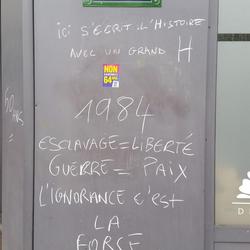 ici s'écrit l'Histoire
avec un grand H
NON
64 ANS
1984
ESCLAVAGE = LIBERTÉ
GUERRE = PAIX
L'IGNORANCE c'est
LA
FORCE